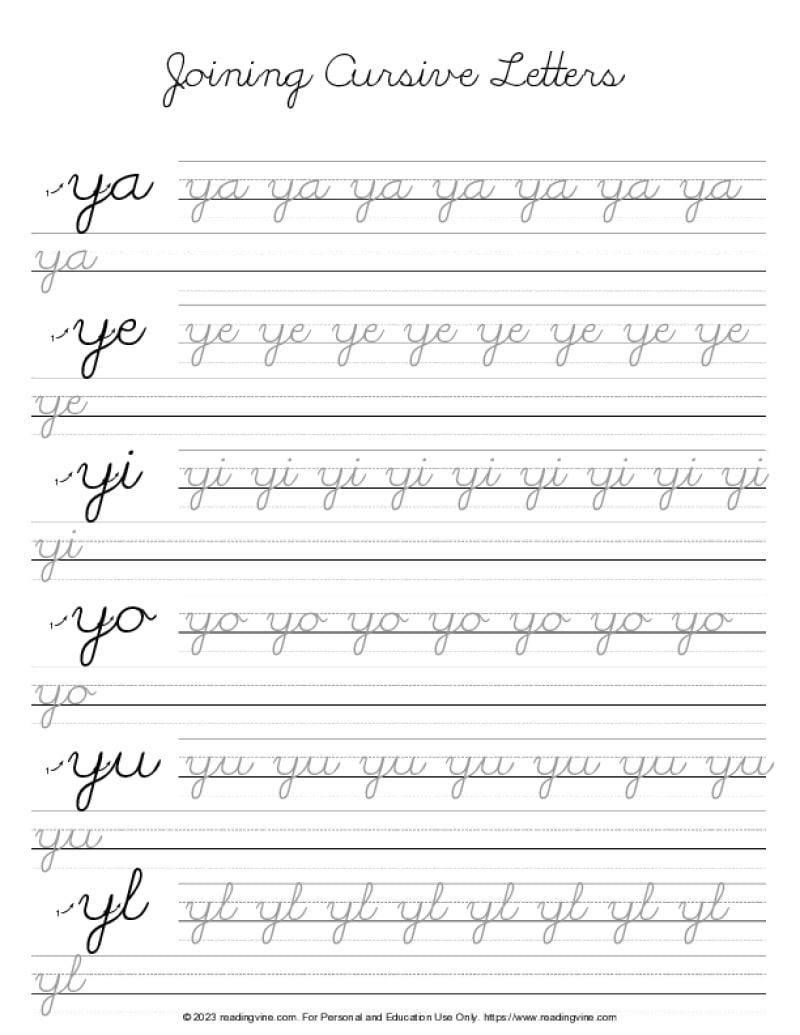 Joining Cursive Letters
ya ya ya ya ya ya ya ya
ya
ye ye ye ye ye ye ye ye ye
ye
yi yi yi yi yi yi yi yi yi yi
yi
yo yo yo yo yo yo yo yo
yo
yu yu yu yu yu yu yu yu
yu
yl yl yl yl yl yl yl yl yl
yl
© 2023 readingvine.com. For Personal and Education Use Only. https://www.readingvine.com